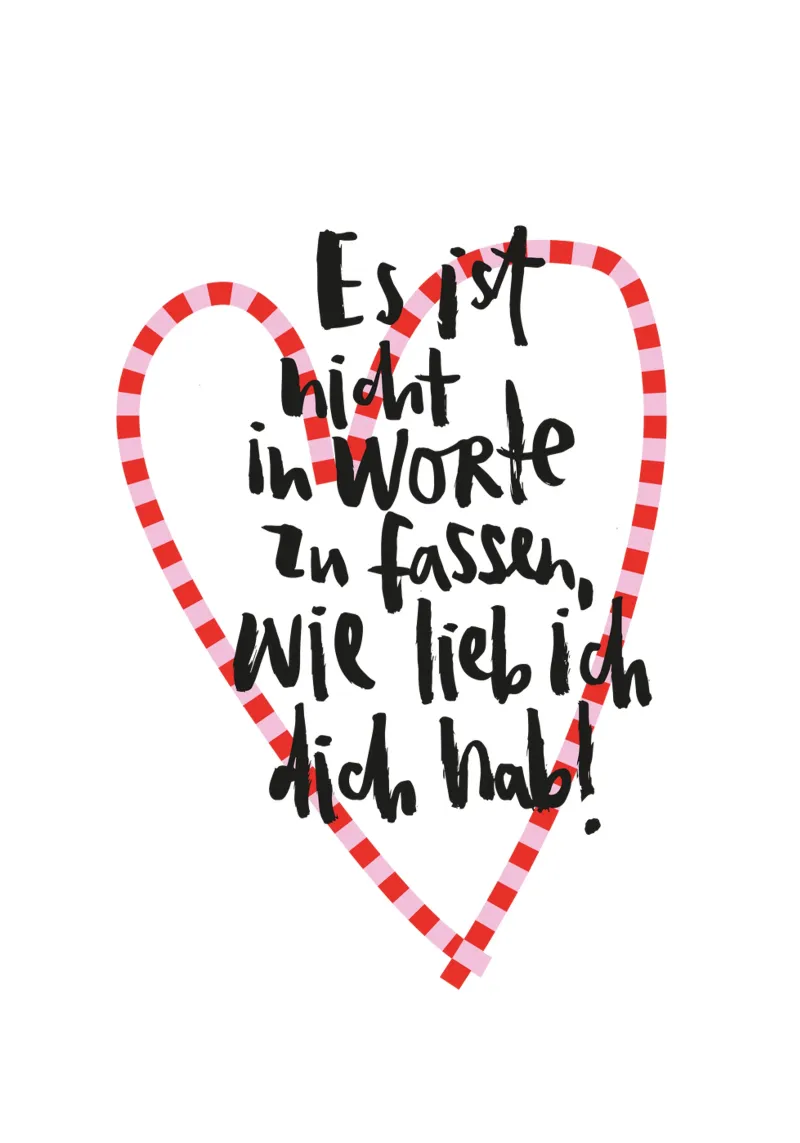 Es ist
nicht
in WORte
zu fassen,
wie lieb ich
dich hab!